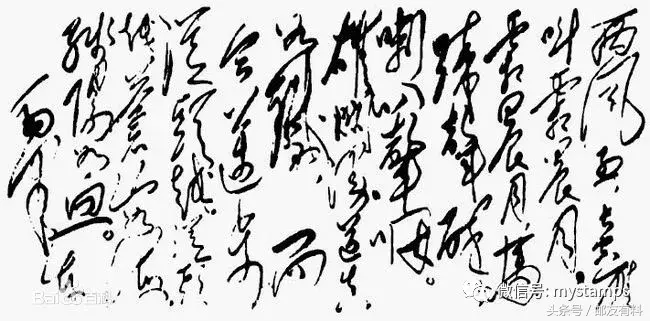 西风烈,长空雁
叫霜晨月。
霜晨月,马
蹄声碎,
喇叭声咽。
雄关漫道真
如铁,而
今迈步
从头越。从头
越,苍山如海,
残阳如血。
Baidu百科
微信号: mystamps
头条号 / 邮友有料